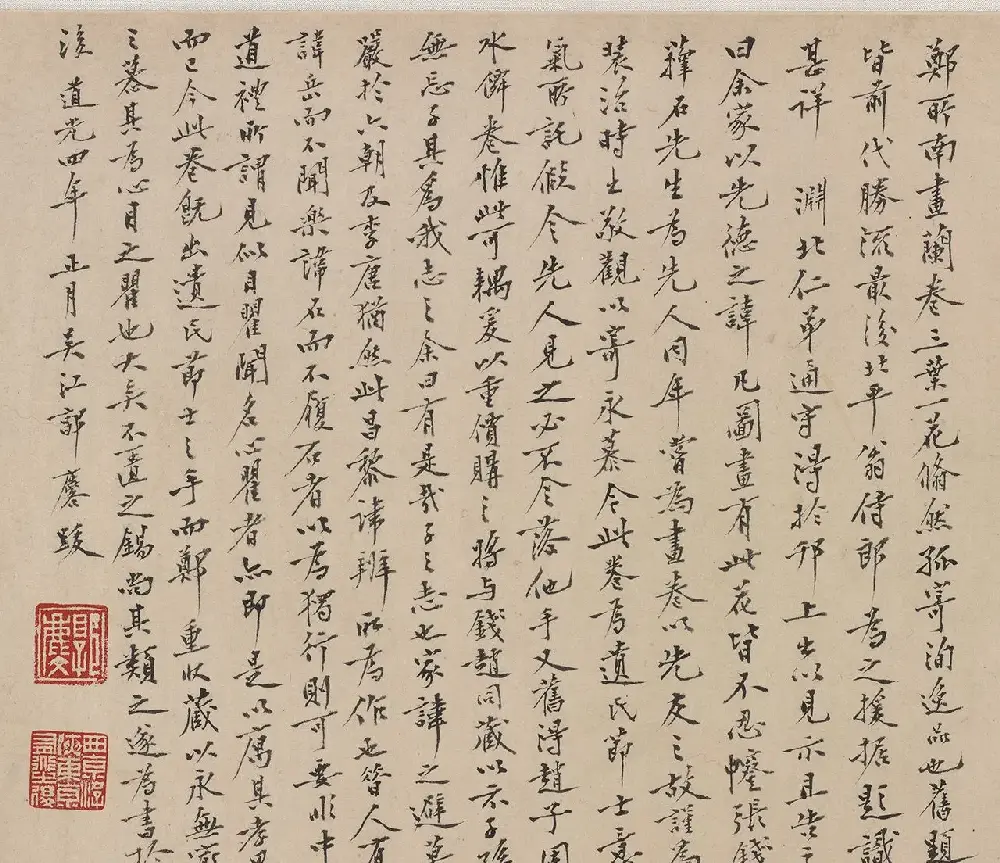 鄭所南畫蘭卷三葉一花翛然孤寄洵逸品也舊題
皆前代勝流最後北平翁侍郎為之援据題識
甚詳 淵北仁弟通守淂於邗上出以見示且告予
曰余家以先德之諱凡圖畫有此花皆不忍幛張錢
蘀石先生為先人同年嘗為畫卷以先友之故謹為
裝治時上敬觀以寄永慕今此卷為遺民節士意
氣所託假令先人見之必不令落他手又舊淂趙子固
水僊卷惟此可耦爰以重價購之將与錢趙同藏以示子孫
無忘子其為我志之余曰有是哉子之志也家諱之避莫
嚴於六朝及李唐猶然此昌黎諱辨所為作也昔人有
諱岳而不聞樂諱石而不履石者以為獨行則可要非中
道禮所謂見似目瞿聞名心瞿者亦即是以寓其孝思
而已今此卷旣出遺民節士之手而鄭重收藏以永無窮
之慕其為心目之瞿也大矣不匱之錫尚其類之遂為書於
後 道光四年正月吳江郭麐跋
郭麐